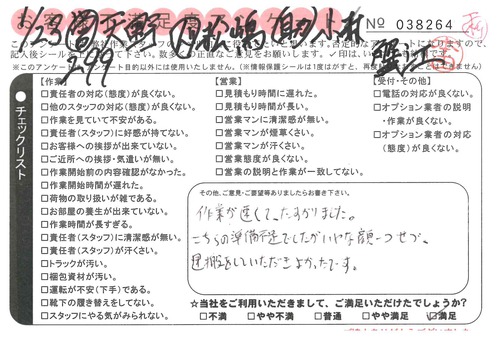 1/23 (営)天野 (責)松嶋 (助)小林
No 038264
2499
チェックリスト
【作業】
□責任者の対応(態度)が良くない。
□他のスタッフの対応(態度)が良くない。
□作業を見ていて不安がある。
□責任者(スタッフ)に好感が持てない。
□お客様への挨拶が出来ていない。
□ご近所への挨拶・気遣いが無い。
□作業開始前の内容確認がなかった。
□作業開始時間が遅れた。
□荷物の取り扱いが雑である。
□お部屋の養生が出来ていない。
□作業時間が長すぎる。
□責任者(スタッフ)に清潔感が無い。
□責任者(スタッフ)が汗くさい。
□トラックが汚い。
□梱包資材が汚い。
□運転が不安(下手)である。
□靴下の履き替えをしてない。
□スタッフにやる気がみられない。
【営業】
□見積もり時間に遅れた。
□見積もり時間が長い。
□営業マンに清潔感が無い。
□営業マンが煙草くさい。
□営業マンが汗くさい。
□営業態度が良くない。
□営業の説明と作業が一致してない。
【受付・その他】
□電話の対応が良くない。
□オプション業者の説明
・作業が良くない。
□オプション業者の対応
(態度)が良くない。
その他、ご意見・ご要望等ありましたらお書き下さい。
作業が速くて、たすかりました。
こちらの準備不足でしたがいやな顔一つせず、
運搬をしていただきよかったです。
☆当社をご利用いただきまして、ご満足いただけたでしょうか?
□不満 □やや不満 □普通 □やや満足 ☑満足